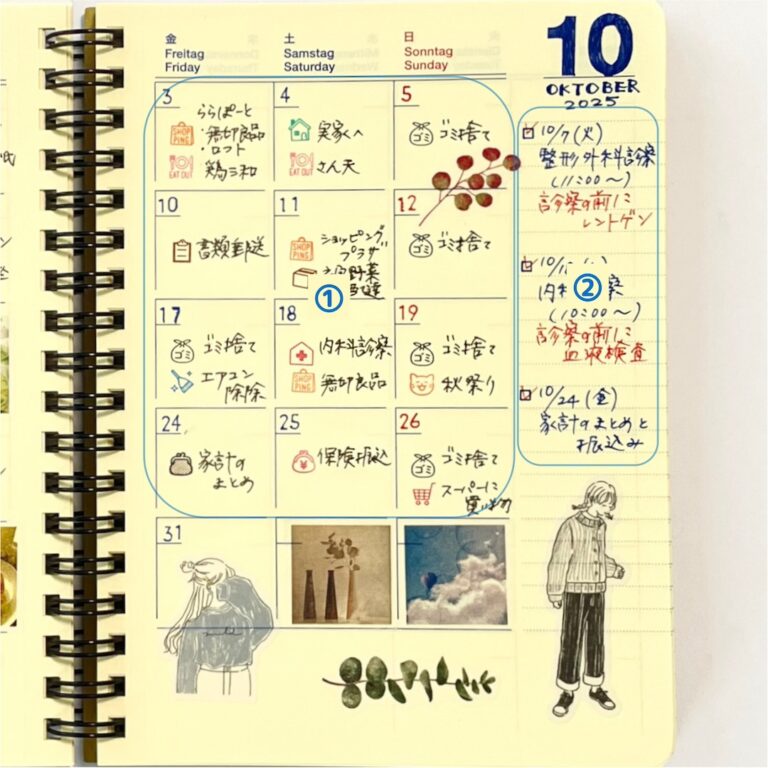 金
Freitag
Friday
土
Samstag
Saturday
日
Sonntag
Sunday
10
OKTOBER
2025
3
ららぽーと
SHOP PING
・無印良品
・ロフト
EAT OUT
鶏三和
4
実家へ
EAT OUT
さん天
5
ゴミ
ゴミ捨て
10
書類郵送
11
SHOP PING
ショッピング
プラザ
野菜
配達
12
ゴミ
ゴミ捨て
①
17
ゴミ
ゴミ捨て
エアコン
掃除
18
内科診察
SHOP PING
無印良品
19
ゴミ
ゴミ捨て
秋祭り
24
家計の
まとめ
25
保険振込
26
ゴミ
ゴミ捨て
スーパーに
買い物
31
10/7(火)
整形外科診察
(11:00〜)
診察の前に
レントゲン
②
10/1
内科 察
(10:00〜)
診察の前に
血液検査
10/24(金)
家計のまとめと
振込み